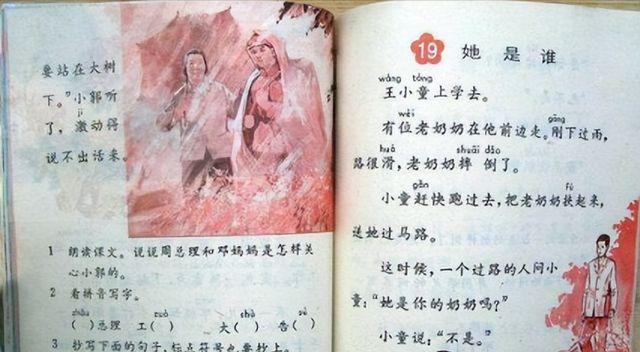 要站在大树
下。”小郭听
jī
了，激动得
说不出话来。
1 朗读课文。说说周总理和邓妈妈是怎样关
心小郭的。
2 看拼音写字。
zhōu zuò shù sù
( )总理 工( ) 大( ) 告( )
3 抄写下面的句子，标点符号也要抄上。
19 她是谁
wáng tóng
王小童上学去。
wèi gāng
有位老奶奶在他前边走。刚下过雨，
huá shuāi dǎo
路很滑，老奶奶摔倒了。
gǎn fú
小童赶快跑过去，把老奶奶扶起来，
送她过马路。
这时候，一个过路的人问小
童：“她是你的奶奶吗？”
小童说：“不是。”